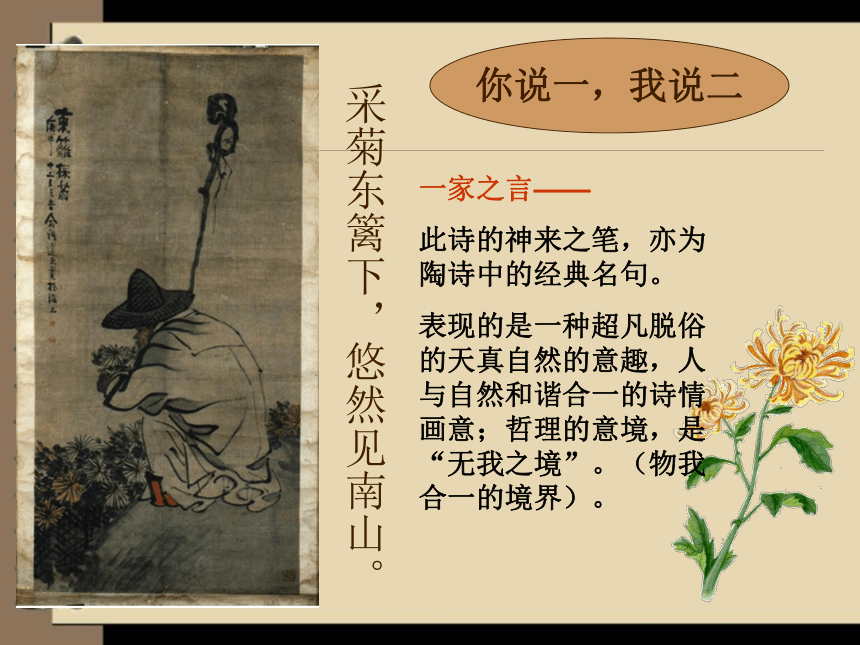 你说一，我说二
采菊东篱下，悠然见南山。
一家之言——
此诗的神来之笔，亦为
陶诗中的经典名句。
表现的是一种超凡脱俗
的天真自然的意趣，人
与自然和谐合一的诗情
画意；哲理的意境，是
“无我之境”。（物我
合一的境界）。